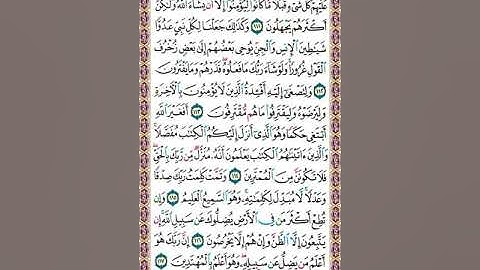 عَلَيْهِمْ كُلَّ شَىْءٍ قُبُلًا مَّا كَانُوا۟ لِيُؤْمِنُوٓا۟ إِلَّآ أَن يَشَآءَ ٱللَّهُ وَلَٰكِنَّ
أَكْثَرَهُمْ يَجْهَلُونَ ١١١ وَكَذَٰلِكَ جَعَلْنَا لِكُلِّ نَبِىٍّ عَدُوًّا
شَيَٰطِينَ ٱلْإِنسِ وَٱلْجِنِّ يُوحِى بَعْضُهُمْ إِلَىٰ بَعْضٍ زُخْرُفَ
ٱلْقَوْلِ غُرُورًا ۚ وَلَوْ شَآءَ رَبُّكَ مَا فَعَلُوهُ ۖ فَذَرْهُمْ وَمَا يَفْتَرُونَ
١١٢ وَلِتَصْغَىٰٓ إِلَيْهِ أَفْـِٔدَةُ ٱلَّذِينَ لَا يُؤْمِنُونَ بِٱلْـَٔاخِرَةِ
وَلِيَرْضَوْهُ وَلِيَقْتَرِفُوا۟ مَا هُم مُّقْتَرِفُونَ ١١٣ أَفَغَيْرَ ٱللَّهِ
أَبْتَغِى حَكَمًا وَهُوَ ٱلَّذِىٓ أَنزَلَ إِلَيْكُمُ ٱلْكِتَٰبَ مُفَصَّلًا ۚ
وَٱلَّذِينَ ءَاتَيْنَٰهُمُ ٱلْكِتَٰبَ يَعْلَمُونَ أَنَّهُۥ مُنَزَّلٌ مِّن رَّبِّكَ بِٱلْحَقِّ ۖ
فَلَا تَكُونَنَّ مِنَ ٱلْمُمْتَرِينَ ١١٤ وَتَمَّتْ كَلِمَتُ رَبِّكَ صِدْقًا
وَعَدْلًا ۚ لَّا مُبَدِّلَ لِكَلِمَٰتِهِۦ ۚ وَهُوَ ٱلسَّمِيعُ ٱلْعَلِيمُ ١١٥ وَإِن
تُطِعْ أَكْثَرَ مَن فِى ٱلْأَرْضِ يُضِلُّوكَ عَن سَبِيلِ ٱللَّهِ ۚ إِن
يَتَّبِعُونَ إِلَّا ٱلظَّنَّ وَإِنْ هُمْ إِلَّا يَخْرُصُونَ ١١٦ إِنَّ رَبَّكَ هُوَ
أَعْلَمُ مَن يَضِلُّ عَن سَبِيلِهِۦ ۖ وَهُوَ أَعْلَمُ بِٱلْمُهْتَدِينَ ١١٧